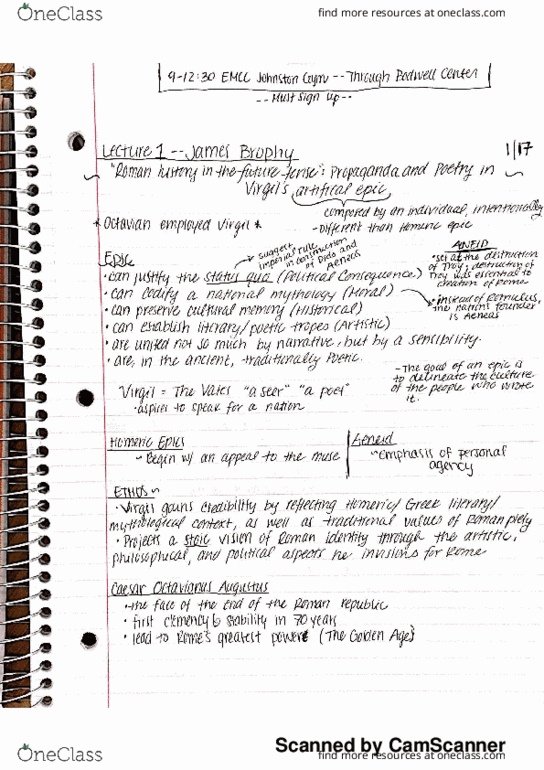 OneClass
find more resources at oneclass.com
9-12:30 EMCC Johnston Gym -- Through Podwell Center
-- Must Sign Up --
Lecture 1 -- James Brophy
1/17
"Roman history in the future-tense": Propaganda and Poetry in
Virgil's artifical epic
composed by an individual, intentionally
- Different than Homeric epic
* Octavian employed Virgil *
Epic
suggest imperial rule in construction of Dido and Aeneas
• can justify the status quo (Political Consequence)
• can codify a national mythology (Moral)
• can preserve cultural memory (Historical)
• can establish literary/poetic tropes (Artistic)
• are united not so much by narrative, but by a sensibility.
• are, in the ancient, traditionally Poetic.
ANEID
• set at the destruction
of Troy; destruction of
Troy was essential to
creation of Rome
• instead of Romulus,
the nation's founder
is Aeneas
- The goal of an epic is
to delineate the culture
of the people who wrote
it.
Virgil = The Vates "a seer" "a poet"
• aspires to speak for a nation
Homeric Epics
~ Begin w/ an appeal to the muse
Aeneid
~ emphasis of personal
agency
ETHOS ~
• Virgil gains credibility by reflecting Homeric/Greek literary/
mythological context, as well as traditional values of Roman piety
• Projects a stoic vision of Roman identity through the artistic,
philosophical, and political aspects he invisions for Rome
Caesar Octavianus Augustus
• the face of the end of the Roman republic
• first clemency & stability in 70 years
• lead to Rome's greatest power (The Golden Age)
Scanned by CamScanner
OneClass
find more resources at oneclass.com